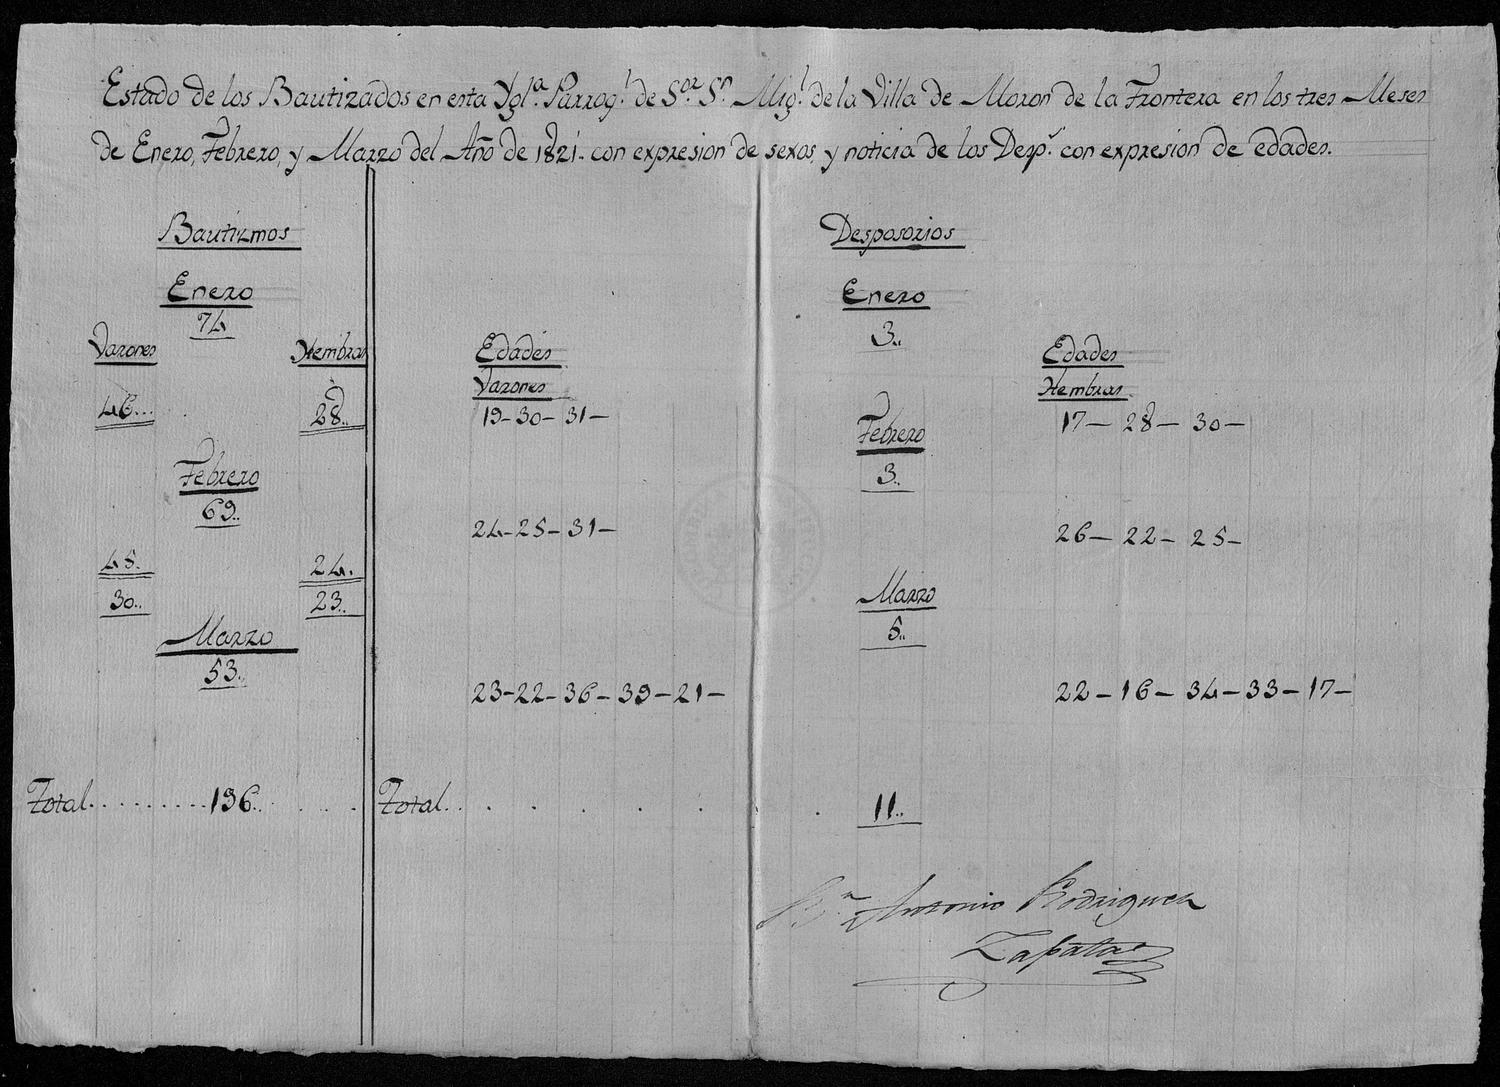 Estado de los Bautizados en esta Ygl.ª Parroq.l de S.or S.n Mig.l de la Villa de Moron de la Frontera en los tres Meses
de Enero, Febrero, y Marzo del Año de 1821. con expresion de sexos y noticia de los Desp.s con expresion de edades.
Bautizmos
Enero
74
Varones Hembras
46... 28..
Febrero
69..
45. 24.
30.. 23..
Marzo
53..
Total..........196......
Desposorios
Enero
3..
Edades Edades
Varones Hembras
19-30-31- 17- 28- 30-
Febrero
3..
24-25-31- 26- 22- 25-
Marzo
5..
23-22-36-39-21- 22-16-34-33-17-
Total....... 11..
B.r Antonio Rodriguez
Zapata